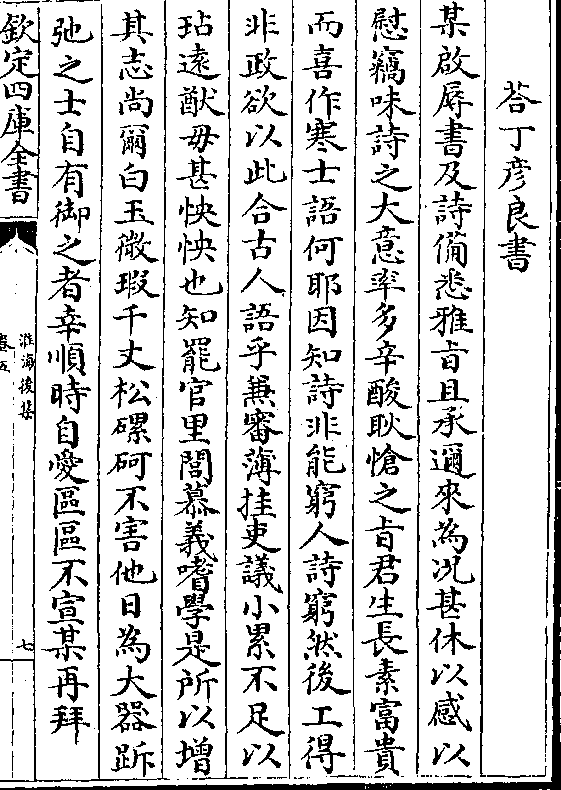 荅丁彦良書
某啟辱書及詩備悉雅㫖且承邇來為况甚休以感以
慰竊味詩之大意率多辛酸耿愴之㫖君生長素富貴
而喜作寒士語何耶因知詩非能窮人詩窮然後工得
非政欲以此合古人語乎兼審薄挂吏議小累不足以
玷遠猷毋甚怏怏也知罷官里閭慕義嗜學是所以增
其志尚爾白玉微瑕千丈松磥砢不害他日為大器跅
弛之士自有御之者幸順時自愛區區不宣某再拜
欽定四庫全書
淮海後集
卷五
七